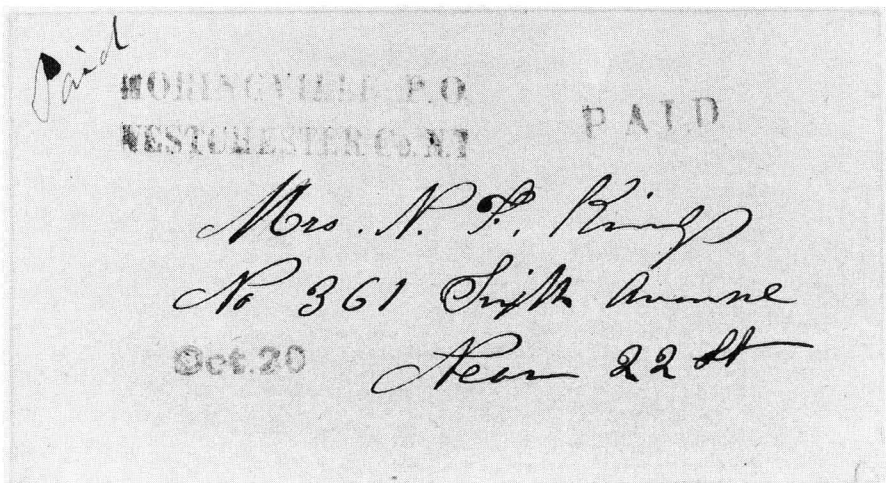 Paid
MORINGVILLE P.O.
WESTCHESTER Co. N.Y
PAID
Mrs. N. F. King
No 361 Sixth Avenue
Oct. 20
Near 22 St